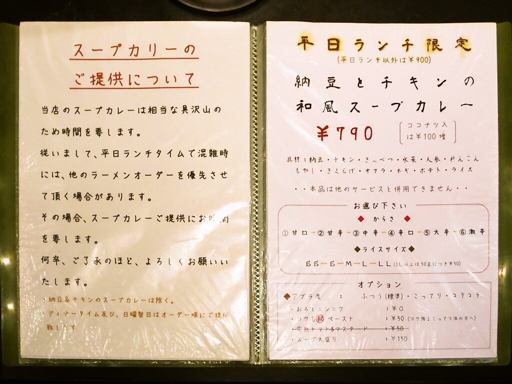 スープカリーの
ご提供について
当店のスープカレーは相当な具沢山の
ため時間を要します。
従いまして、平日ランチタイムで混雑時
には、他のラーメンオーダーを優先させ
て頂く場合があります。
その場合、スープカレーご提供にお時間
を要します。
何卒、ご了承のほど、よろしくお願いい
たします。
・納豆&チキンのスープカレーは除く。
・ディナータイム及び、日曜祭日はオーダー順にご提供
致します
平日ランチ限定
(平日ランチ以外は¥900)
納豆とチキンの
和風スープカレー
¥790
ココナツ入
は¥100増
具材:納豆・チキン・きゃべつ・水菜・人参・れんこん
もやし・きくらげ・オクラ・ネギ・ポテト・ライス
・・本品は他のサービスと併用できません・・
お選び下さい
◆からさ◆
①甘口-②甘辛-③中辛-④辛口-⑤大辛-⑥激辛
◆ライスサイズ◆
SS-S-M-L-LL
オプション
ふつう(標準)・こってり・コテコテ
¥0
ペースト
:¥50
・スープ大盛り
:¥150